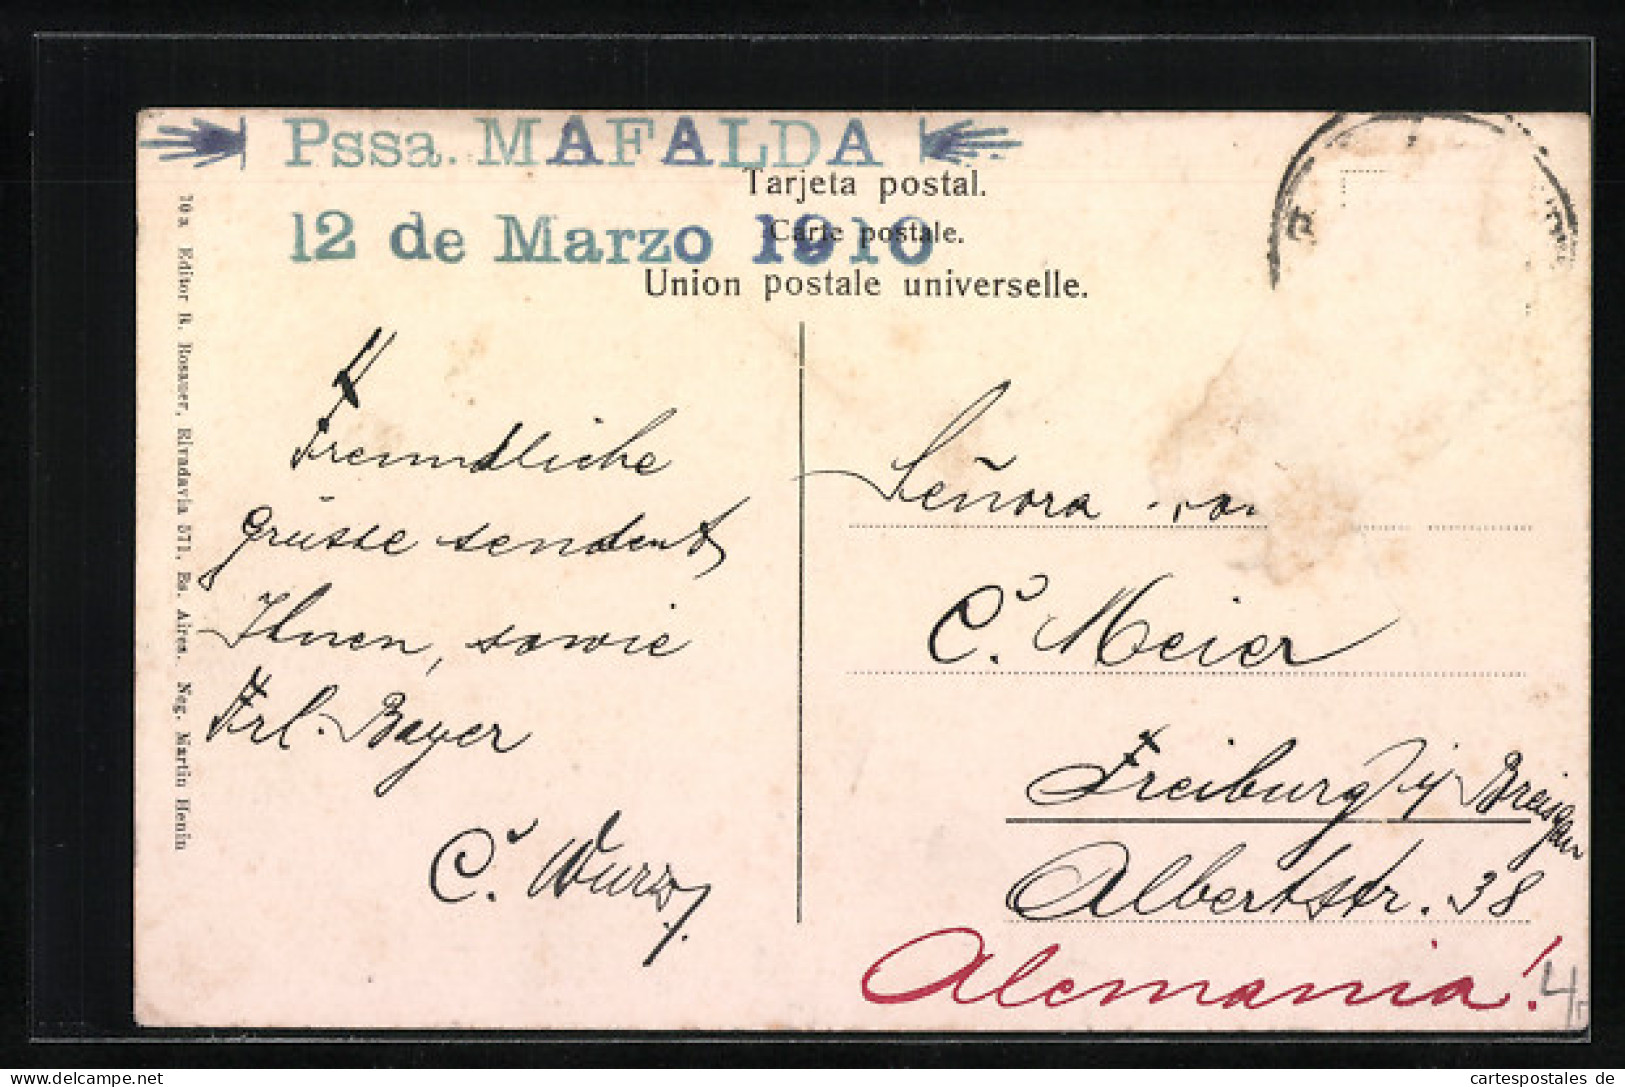 Pssa. MAFALDA
12 de Marzo 1910
Tarjeta postal.
Carte postale.
Union postale universelle.
10 a Editor R. Rosauer, Rivadavia 571, Bs. Aires. Neg. Martin Henin
Freundliche
Grüsse sendent
Ihnen, sowie
Frl. Bayer
C. Wurz
Señora
C. Meier
Freiburg i/ Breisgau
Albertstr. 38
Alemania!
4
cartespostales de